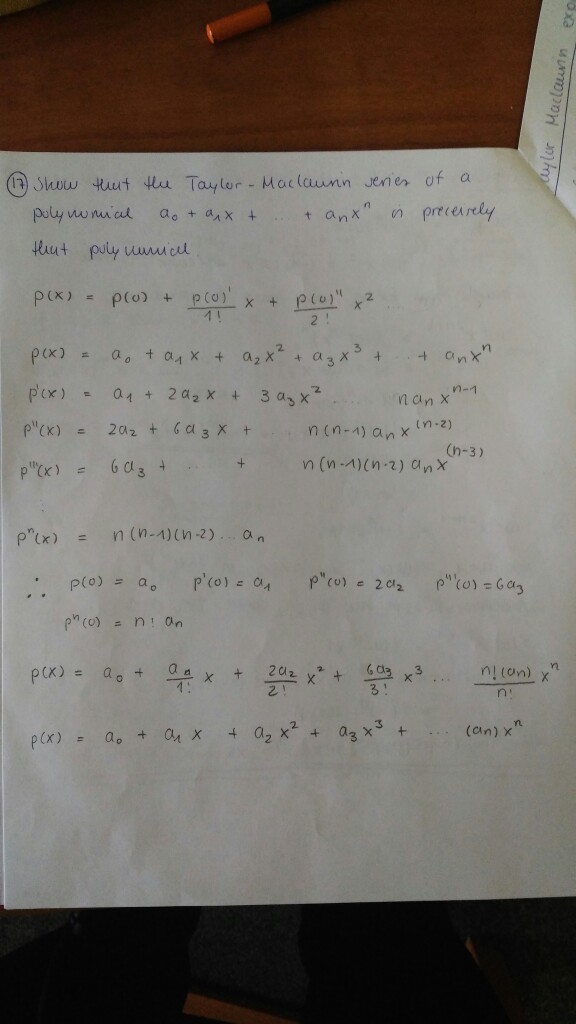 Taylor Maclaurin exp
17 Show that the Taylor-Maclaurin series of a
polynomial a₀ + a₁x + ... + aₙxⁿ is precesively
that polynomial
p(x) = p(0) + p(0)'/1! x + p(0)''/2! x² ...
p(x) = a₀ + a₁x + a₂x² + a₃x³ + ... + aₙxⁿ
p'(x) = a₁ + 2a₂x + 3a₃x² ..... naₙxⁿ⁻¹
p''(x) = 2a₂ + 6a₃x + ... n(n-1)aₙx⁽ⁿ⁻²⁾
p'''(x) = 6a₃ + ... + n(n-1)(n-2)aₙx⁽ⁿ⁻³⁾
⋮
pⁿ(x) = n(n-1)(n-2)...aₙ
∴ p(0) = a₀ p'(0) = a₁ p''(0) = 2a₂ p'''(0) = 6a₃
pⁿ(0) = n! aₙ
p(x) = a₀ + a₁/1! x + 2a₂/2! x² + 6a₃/3! x³ ... n!(aₙ)/n! xⁿ
p(x) = a₀ + a₁x + a₂x² + a₃x³ + ... (aₙ)xⁿ